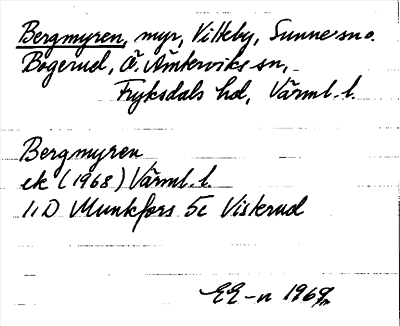 Bergmyren, myr, Vitteby, Sunne sn o.
Bogerud, Ö. Ämterviks sn,
Fryksdals hd, Värml. l.
Bergmyren
ek (1968) Värml. l.
11D Munkfors 5c Viskrud
EE-n 1969